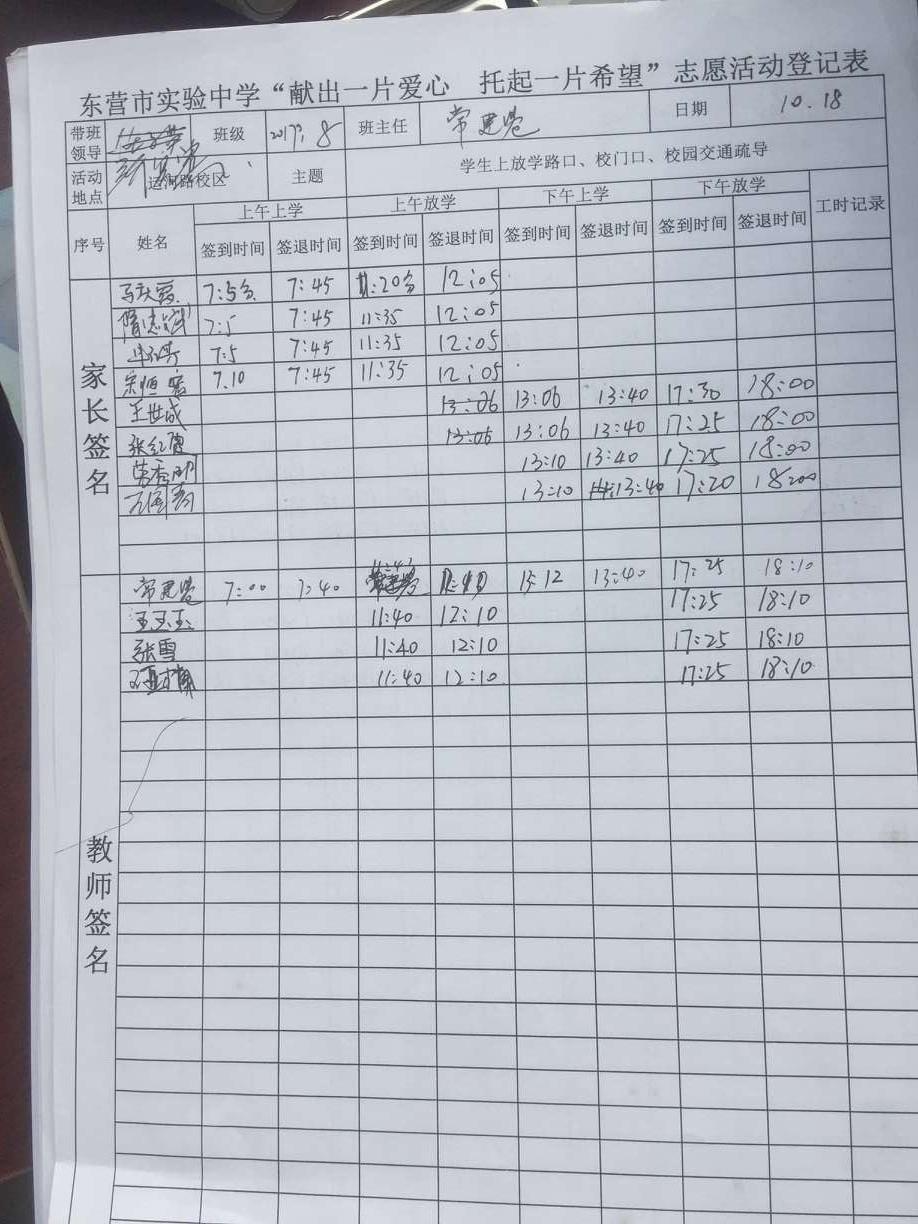 东营市实验中学“献出一片爱心 托起一片希望”志愿活动登记表
带班领导 班级 2017. 8 班主任 日期 10.18
活动地点 运河路校区 主题 学生上放学路口、校门口、校园交通疏导
序号 姓名 上午上学 上午放学 下午上学 下午放学 工时记录
签到时间 签退时间 签到时间 签退时间 签到时间 签退时间 签到时间 签退时间
家长签名
7:5分 7:45 11:20分 12:05
7:5 7:45 11:35 12:05
7:5 7:45 11:35 12:05
宋恒宏 7.10 7:45 11:35 12:05
王世成 13:06 13:06 13:40 17:30 18:00
张红霞 13:06 13:06 13:40 17:25 18:00
13:10 13:40 17:25 18:00
13:10 13:40 17:20 18:00
教师签名
7:00 7:40 13:12 13:40 17:25 18:10
王玉玉 11:40 12:10 17:25 18:10
张雪 11:40 12:10 17:25 18:10
11:40 12:10 17:25 18:10